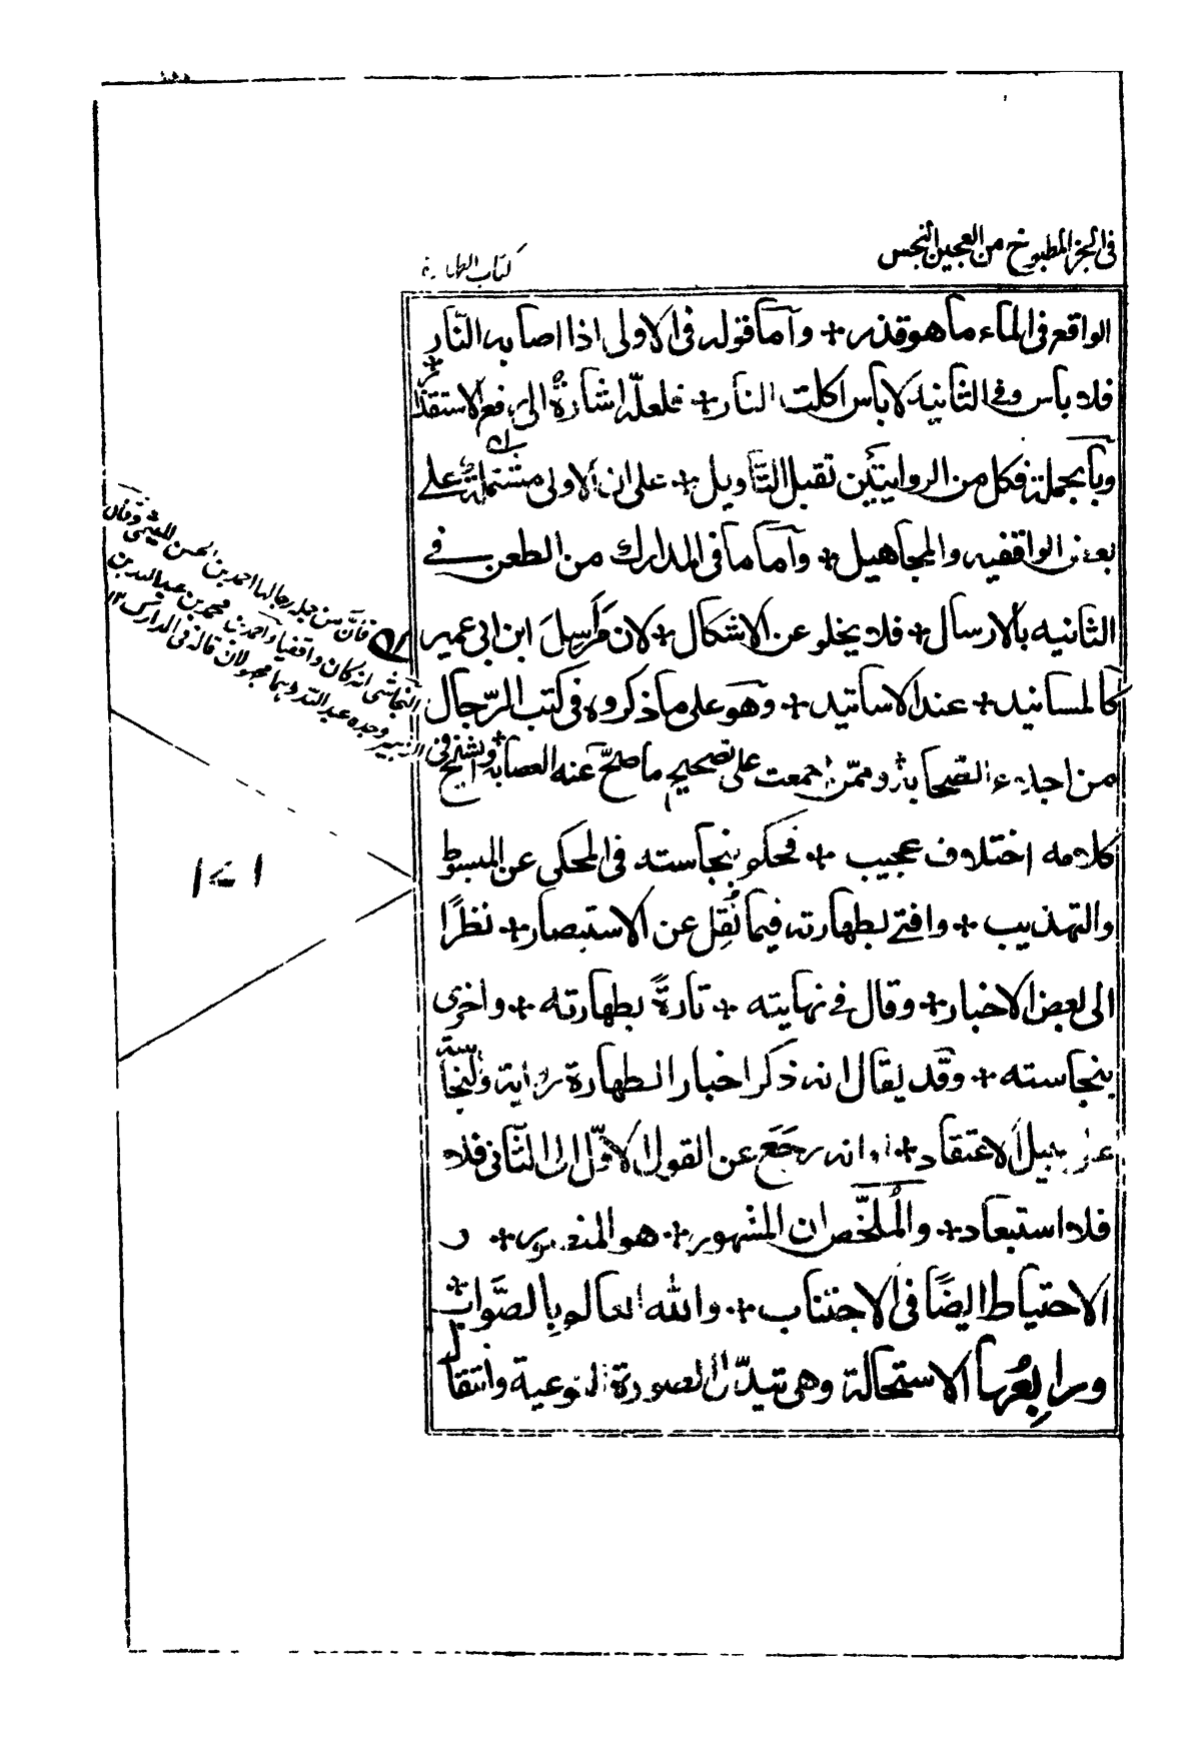 فى الخبز المطبوخ من العجين النجس
كتاب الطهارة
الواقع فى الماء ما هو قذر + وأما قوله فى الاولى اذا اصابه النّار
فلا بأس وفى الثانيه لا بأس اكلت النار + فلعلّه اشارةٌ الى رفع الاستقذار +
وبالجملة فكل من الروايتَين تقبل التَّأويل + على ان الاولى مشتملة على
بعض الواقفيه والمجاهيل + وأما ما فى المدارك من الطعن فى
الثانيه بالارسال + فلا يخلو عن الاشكال + لان مَراسِلَ ابن ابى عمير
كالمسانيد + عند الاساتيد + وهو على ما ذكروه فى كتب الرّجال
من اجلاء الصّحابة + وممّن اجمعت على تصحيح ما صحّ عنه العصابة + وللشيخ فى
كلامه اختلاف عجيب + فحكم بنجاسته فى المحكى عن المبسوط
والتهذيب + وافتى بطهارته فيما نُقِل عن الاستبصار + نظرًا
الى بعض الاخبار + وقال فى نهايته + تارةً بطهارته + واخرى
بنجاسته + وقد يقال انه ذكر اخبار الطهارة رواية والنجاسة
على سبيل الاعتقاد + او انه رجَعَ عن القول الاوّل الى الثّانى فلا
فلا استبعاد + والمُلخّص ان المشهور + هو المنصور + و
الاحتياط ايضًا فى الاجتناب + والله العالم بالصَّواب +
ورابِعُها الاستحالة وهى تبدّل الصورة النوعية وانتقال
فانّ من جملة رجالها احمد بن الحسن الميثمى وقال
النجاشى انه كان واقفيا واحمد بن محمد بن عبد الله بن
الزبير وجده عبد الله وهما مجهولان قاله فى المدارك ١٢